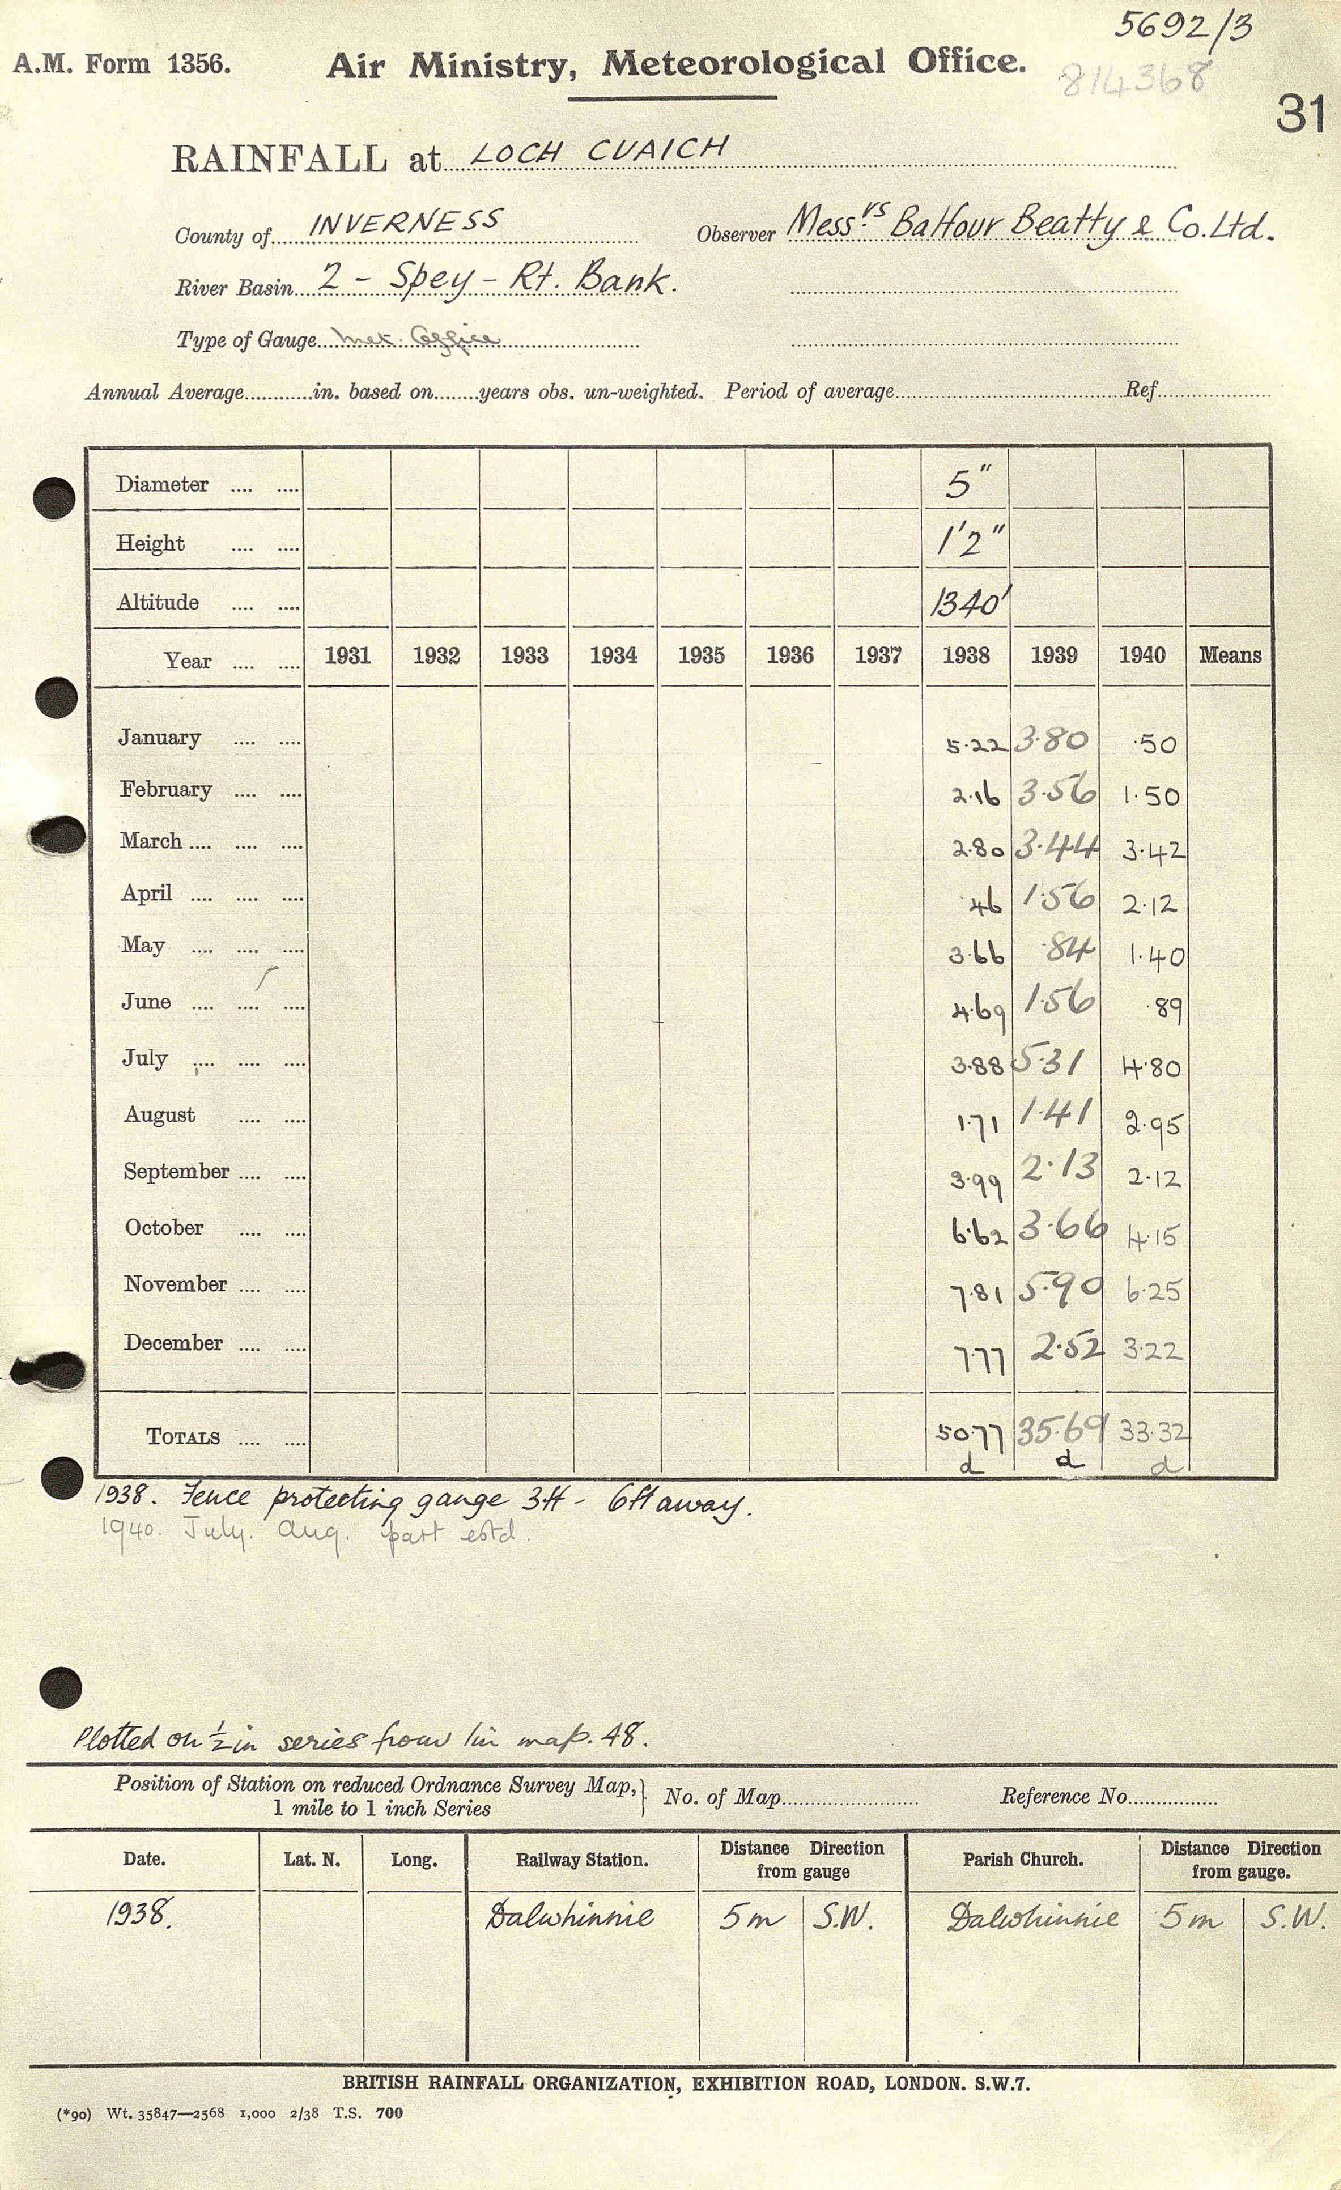 5692/3
A.M. Form 1356. Air Ministry, Meteorological Office.
814368
31
RAINFALL at LOCH CUAICH
County of INVERNESS Observer Messrs Balfour Beatty & Co. Ltd.
River Basin 2 - Spey - Rt. Bank.
Type of Gauge Met. Office
Annual Average............in. based on........years obs. un-weighted. Period of average............Ref............
Diameter .... .... 5"
Height .... .... 1'2"
Altitude .... .... 1340'
Year .... .... 1931 1932 1933 1934 1935 1936 1937 1938 1939 1940 Means
January .... .... 5.22 3.80 .50
February .... .... 2.16 3.56 1.50
March .... .... .... 2.80 3.44 3.42
April .... .... .... .46 1.56 2.12
May .... .... .... 3.66 .84 1.40
June .... .... .... 4.69 1.56 .89
July .... .... .... 3.88 5.31 4.80
August .... .... 1.71 1.41 2.95
September .... .... 3.99 2.13 2.12
October .... .... 6.62 3.66 4.15
November .... .... 7.81 5.90 6.25
December .... .... 7.77 2.52 3.22
TOTALS .... .... 50.77 35.69 33.32
d d d
1938. Fence protecting gauge 3ft - 6ft away.
1940. July. Aug. part estd.
Plotted on ½ in series from 1in map. 48.
Position of Station on reduced Ordnance Survey Map, } No. of Map............ Reference No............
1 mile to 1 inch Series
Date. Lat. N. Long. Railway Station. Distance Direction from gauge Parish Church. Distance Direction from gauge.
1938. Dalwhinnie 5m S.W. Dalwhinnie 5m S.W.
BRITISH RAINFALL ORGANIZATION, EXHIBITION ROAD, LONDON. S.W.7.
(*90) Wt. 35847—2568 1,000 2/38 T.S. 700